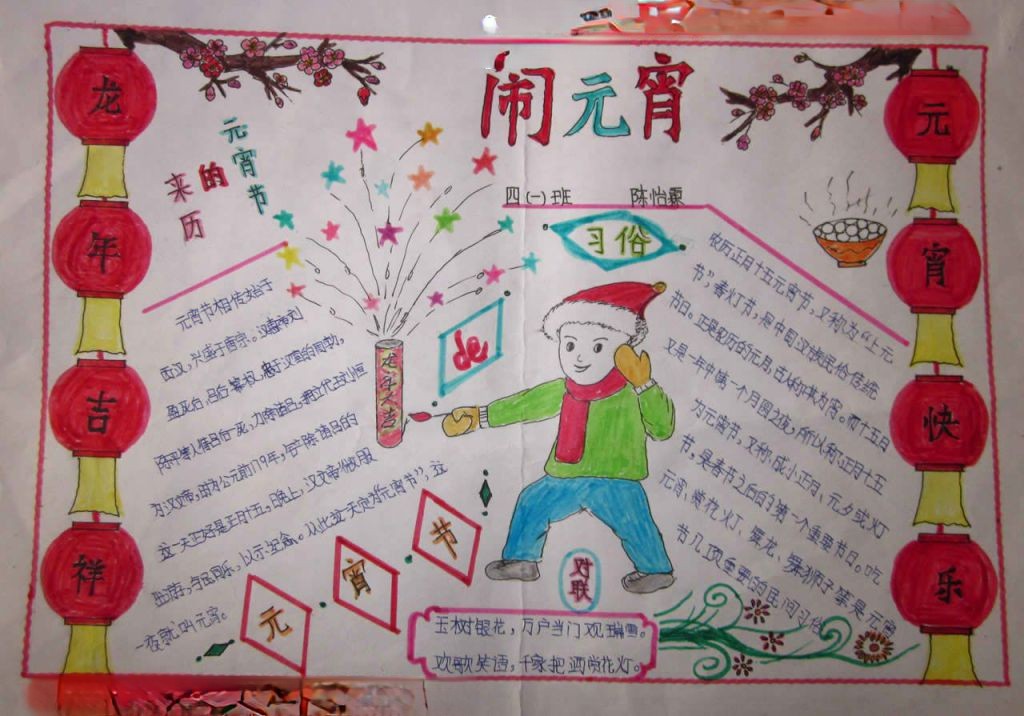 闹元宵
四(一)班 陈怡霖
龙年吉祥
元宵快乐
元宵节
的
来历
元宵节相传始于
西汉，兴盛于唐宗。汉高祖刘
盈死后，吕后篡权，
陈平等人待吕后一死，力除诸吕，拥立代王刘恒
为汉文帝，因为公元前179年，
这一天正好是正月十五。日晚上，汉文帝做服
出游，与民同乐，以示纪念。从此这一天定为"元宵节"，这
一夜就叫元宵。
龙年大吉
de
元宵节
习俗
农历正月十五元宵节，又称为"上元
节"，春灯节，是中国汉族民俗传统
节日。正是农历的元月，古人称其为宵。而十五日
又是一年中第一个月圆之夜，所以称正月十五
为元宵节，又称成小正月、元夕或灯
节，是春节之后的第一个重要节日。吃
元宵、赏花灯、舞龙、舞狮子等是元宵
节几项重要的民间习俗。
对联
玉树银花，万户当门观瑞雪。
欢歌笑语，千家把酒赏花灯。